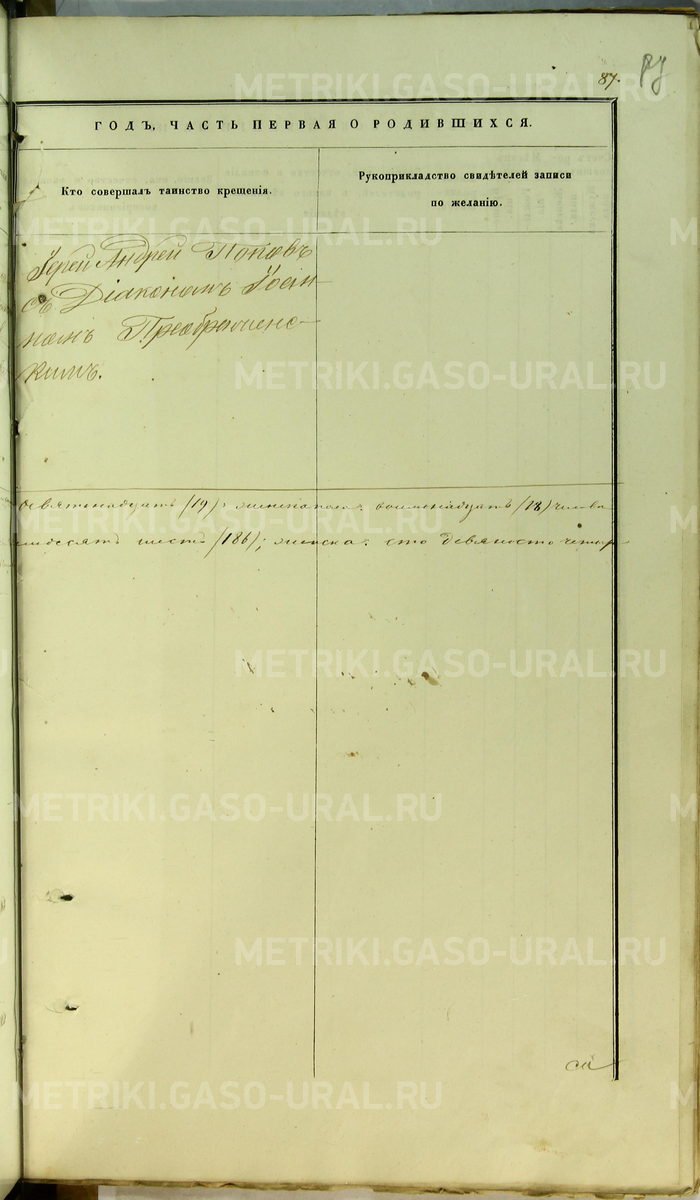 87.
METRIKI.GASO-URAL.RU
ГОДЪ, ЧАСТЬ ПЕРВАЯ О РОДИВШИХСЯ.
Кто совершалъ таинство крещенія.
Рукоприкладство свидѣтелей записи
по желанію.
METRIKI.GASO-URAL.RU
Іерей Андрей Поповъ
съ Діакономъ Іоан-
номъ Преображенс-
кимъ.
METRIKI.GASO-URAL.RU
девятнадцать /19/; женскаго: восемнадцать /18/ челове
шесть /186/; женска: сто девяносто четыре
METRIKI.GASO-URAL.RU
METRIKI.GASO-URAL.RU
METRIKI.GASO-URAL.RU
METRIKI.GASO-URAL.RU